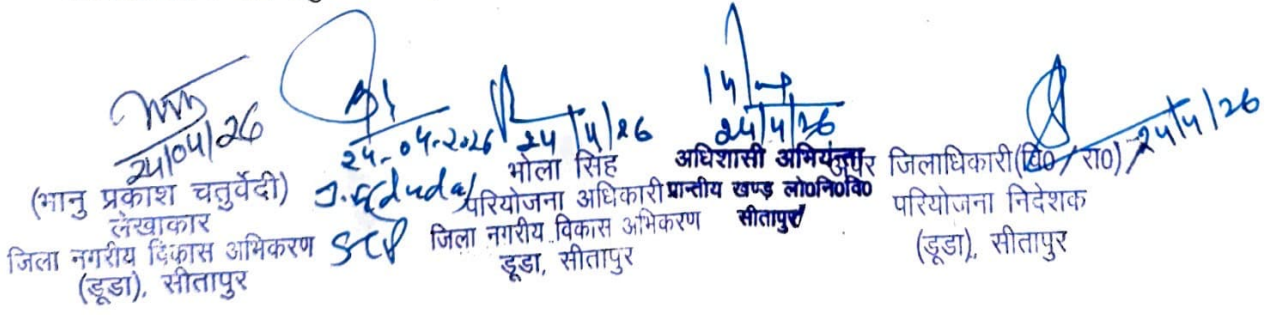 24/04/26
(भानु प्रकाश चतुर्वेदी)
लेखाकार
जिला नगरीय विकास अभिकरण
(डूडा), सीतापुर
24-04-2026
24/4/26
भोला सिंह
परियोजना अधिकारी
जिला नगरीय विकास अभिकरण
डूडा, सीतापुर
24/4/26
अधिशासी अभियन्ता
प्रान्तीय खण्ड लो०नि०वि०
सीतापुर
24/4/26
अपर जिलाधिकारी(वि०/रा०)
परियोजना निदेशक
(डूडा), सीतापुर